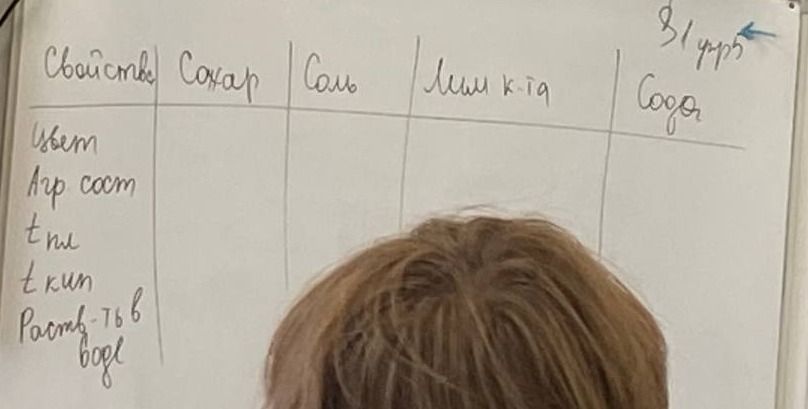 Свойства Сахар Соль Лим к-та Сода
Цвет
Агр сост
t пл
t кип
Раств-ть в
воде